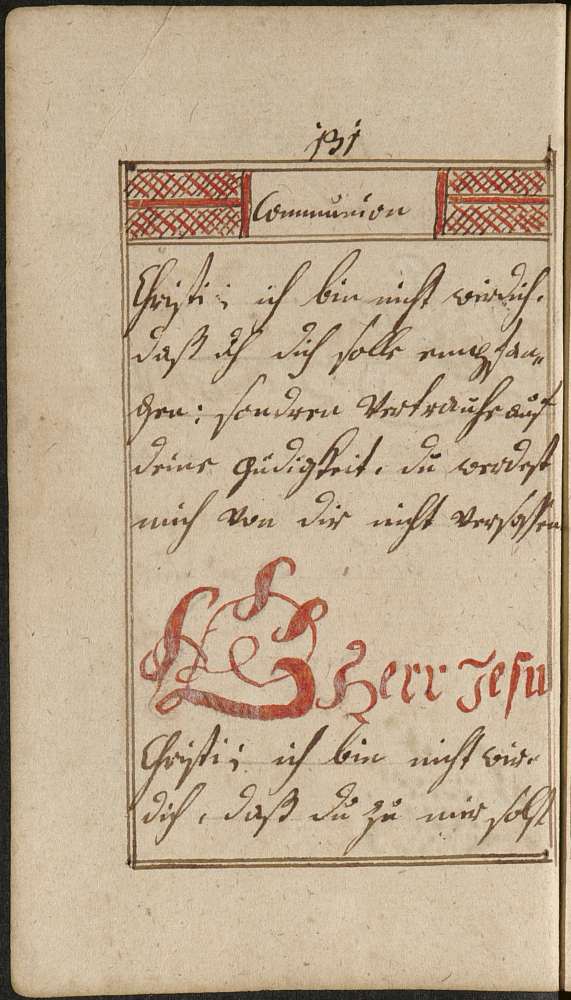 131
Communion
Christi; ich bin nicht wirdich.
daß ich dich solle empfan„
gen: sondren Vertrauhe auf
deine gudigkeit. du werdest
mich von dir nicht verstossen
O Herr Jesu
Christi; ich bin nicht wir„
dich, daß du zu mir solst